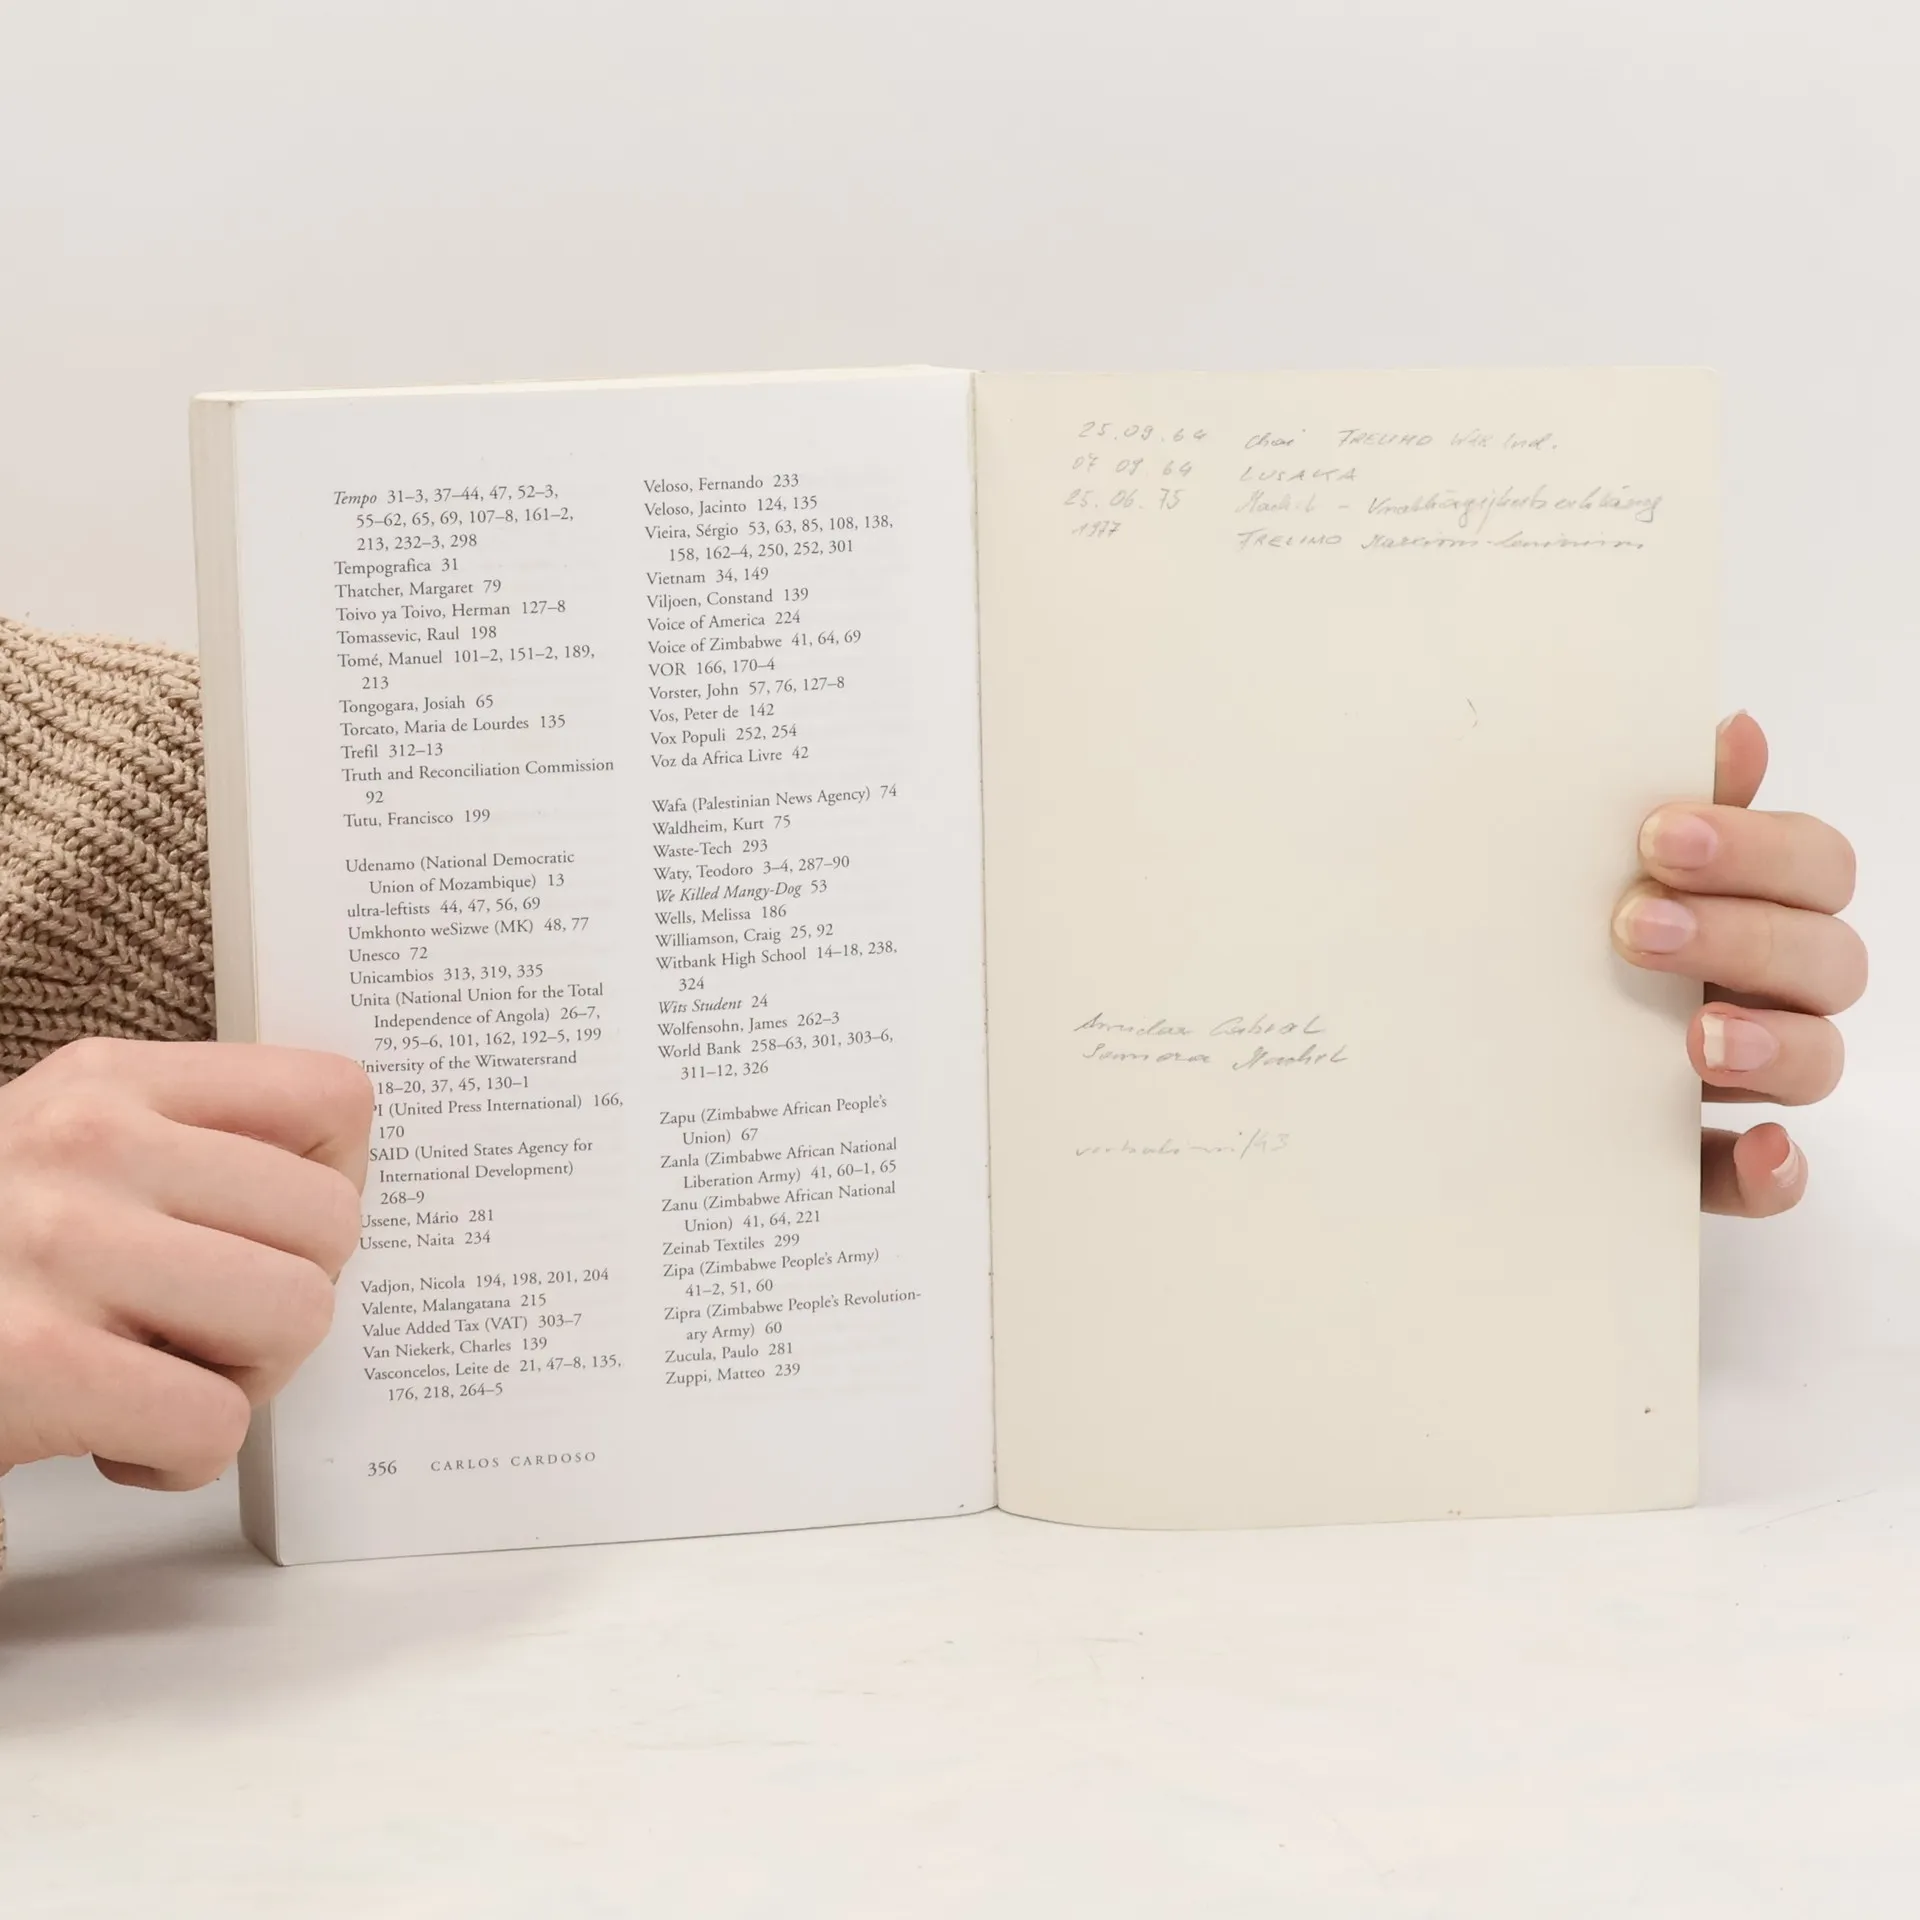 Tempo 31–3, 37–44, 47, 52–3,
55–62, 65, 69, 107–8, 161–2,
213, 232–3, 298
Tempografica 31
Thatcher, Margaret 79
Toivo ya Toivo, Herman 127–8
Tomassevic, Raul 198
Tomé, Manuel 101–2, 151–2, 189,
213
Tongogara, Josiah 65
Torcato, Maria de Lourdes 135
Trefil 312–13
Truth and Reconciliation Commission
92
Tutu, Francisco 199
Udenamo (National Democratic
Union of Mozambique) 13
ultra-leftists 44, 47, 56, 69
Umkhonto weSizwe (MK) 48, 77
Unesco 72
Unicambios 313, 319, 335
Unita (National Union for the Total
Independence of Angola) 26–7,
79, 95–6, 101, 162, 192–5, 199
University of the Witwatersrand
18–20, 37, 45, 130–1
PI (United Press International) 166,
170
SAID (United States Agency for
International Development)
268–9
Ussene, Mário 281
Ussene, Naita 234
Vadjon, Nicola 194, 198, 201, 204
Valente, Malangatana 215
Value Added Tax (VAT) 303–7
Van Niekerk, Charles 139
Vasconcelos, Leite de 21, 47–8, 135,
176, 218, 264–5
356 CARLOS CARDOSO
Veloso, Fernando 233
Veloso, Jacinto 124, 135
Vieira, Sérgio 53, 63, 85, 108, 138,
158, 162–4, 250, 252, 301
Vietnam 34, 149
Viljoen, Constand 139
Voice of America 224
Voice of Zimbabwe 41, 64, 69
VOR 166, 170–4
Vorster, John 57, 76, 127–8
Vos, Peter de 142
Vox Populi 252, 254
Voz da Africa Livre 42
Wafa (Palestinian News Agency) 74
Waldheim, Kurt 75
Waste-Tech 293
Waty, Teodoro 3–4, 287–90
We Killed Mangy-Dog 53
Wells, Melissa 186
Williamson, Craig 25, 92
Witbank High School 14–18, 238,
324
Wits Student 24
Wolfensohn, James 262–3
World Bank 258–63, 301, 303–6,
311–12, 326
Zapu (Zimbabwe African People's
Union) 67
Zanla (Zimbabwe African National
Liberation Army) 41, 60–1, 65
Zanu (Zimbabwe African National
Union) 41, 64, 221
Zeinab Textiles 299
Zipa (Zimbabwe People's Army)
41–2, 51, 60
Zipra (Zimbabwe People's Revolution-
ary Army) 60
Zucula, Paulo 281
Zuppi, Matteo 239
25.09.64 Chai FRELIMO Ind.
07 09 64 LUSAKA
25.06.75 Machel –
1977 FRELIMO Marxism-Leninism
Amilcar Cabral
Samora Machel